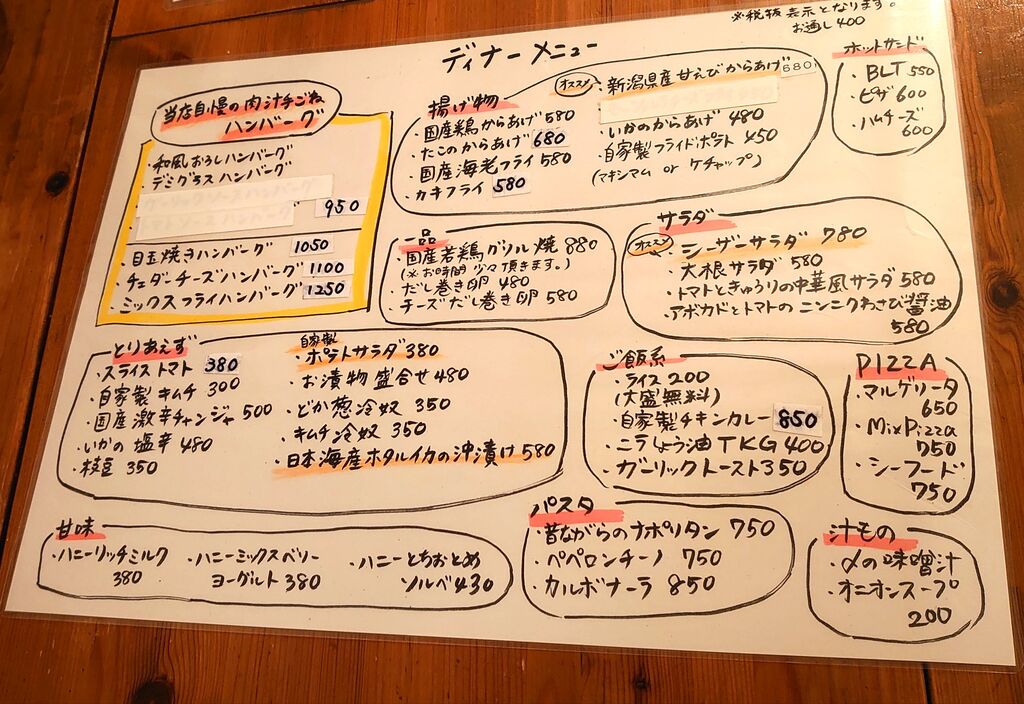 ※税抜表示となります。
お通し400
ディナーメニュー
当店自慢の肉汁手ごね
ハンバーグ
・和風おろしハンバーグ
・デミグラスハンバーグ
950
・目玉焼きハンバーグ 1050
・チェダーチーズハンバーグ 1100
・ミックスフライハンバーグ 1250
揚げ物
オススメ
・新潟県産甘えびからあげ 680
・国産鶏からあげ 580
・たこのからあげ 680
・国産海老フライ 580
・カキフライ 580
・いかのからあげ 480
・自家製フライドポテト 450
(マキシマム or ケチャップ)
ホットサンド
・BLT 550
・ピザ 600
・ハムチーズ
600
一品
・国産若鶏グリル焼 880
(※お時間少々頂きます。)
・だし巻き卵 480
・チーズだし巻き卵 580
サラダ
オススメ
・シーザーサラダ 780
・大根サラダ 580
・トマトときゅうりの中華風サラダ 580
・アボカドとトマトのニンニクわさび醤油
580
とりあえず
・スライストマト 380
・自家製キムチ 300
・国産激辛チャンジャ 500
・いかの塩辛 480
・枝豆 350
自家製
・ポテトサラダ 380
・お漬物盛合せ 480
・どか葱冷奴 350
・キムチ冷奴 350
・日本海産ホタルイカの沖漬け 580
ご飯系
・ライス 200
(大盛無料)
・自家製チキンカレー 850
・ニラしょう油TKG 400
・ガーリックトースト 350
PIZZA
・マルゲリータ
650
・MixPizza
750
・シーフード
750
甘味
・ハニーリッチミルク
380
・ハニーミックスベリー
ヨーグルト 380
・ハニーとちおとめ
ソルベ 430
パスタ
・昔ながらのナポリタン 750
・ペペロンチーノ 750
・カルボナーラ 850
汁もの
・〆の味噌汁
・オニオンスープ
200